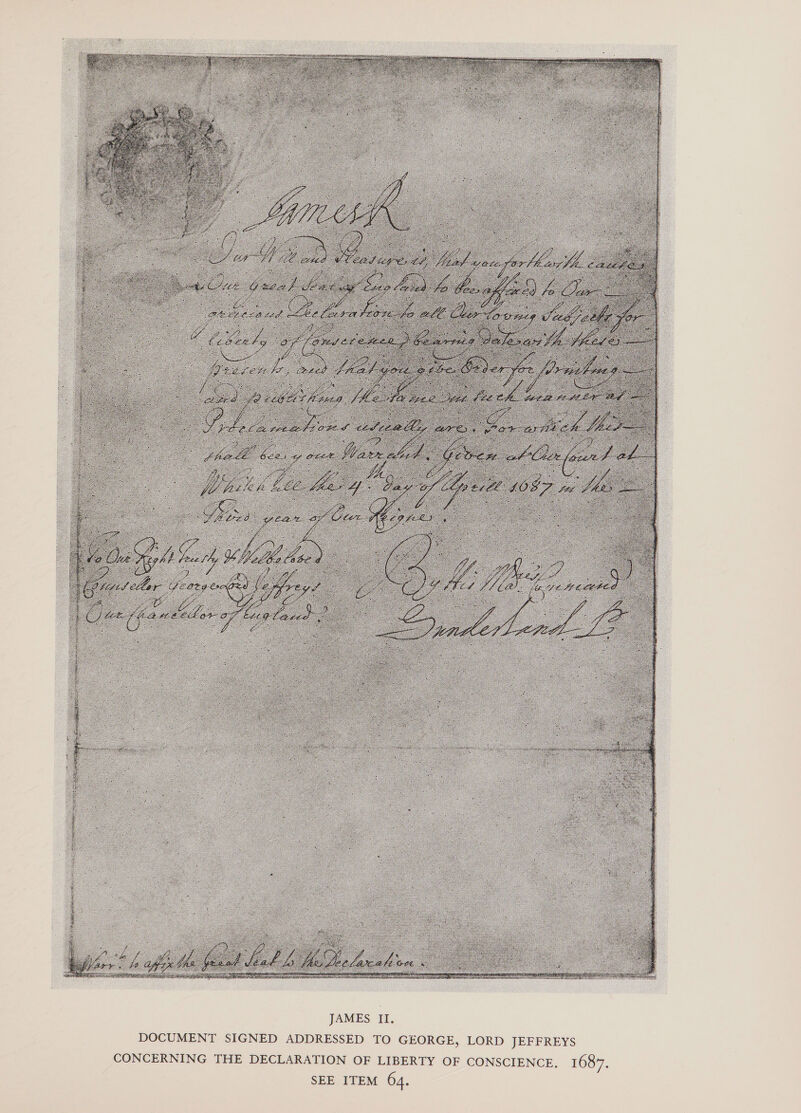 James R
Our Will and Pleasure is, that you forthwith cause
Our Great Seal of England to bee affixed to Our
gracious Declaration to all Our loving Subjects for
liberty of Conscience, bearing date with these
presents, and that you give Order for printing
and publishing the same in such manner as
Proclamations usually are. For which this
shall bee your Warrant. Given at Our Court at
Whitehall the 4th. day of Aprill 1687 in the
Third year of Our Reigne.
To Our Right Trusty & Welbeloved
Counsellor George Lord Jeffreys
Our Chancellor of England
By His Maties. Command
Sunderland P
Warrt. to affix the Great Seal to the Declaration.
JAMES II.
DOCUMENT SIGNED ADDRESSED TO GEORGE, LORD JEFFREYS
CONCERNING THE DECLARATION OF LIBERTY OF CONSCIENCE. 1687.
SEE ITEM 64.